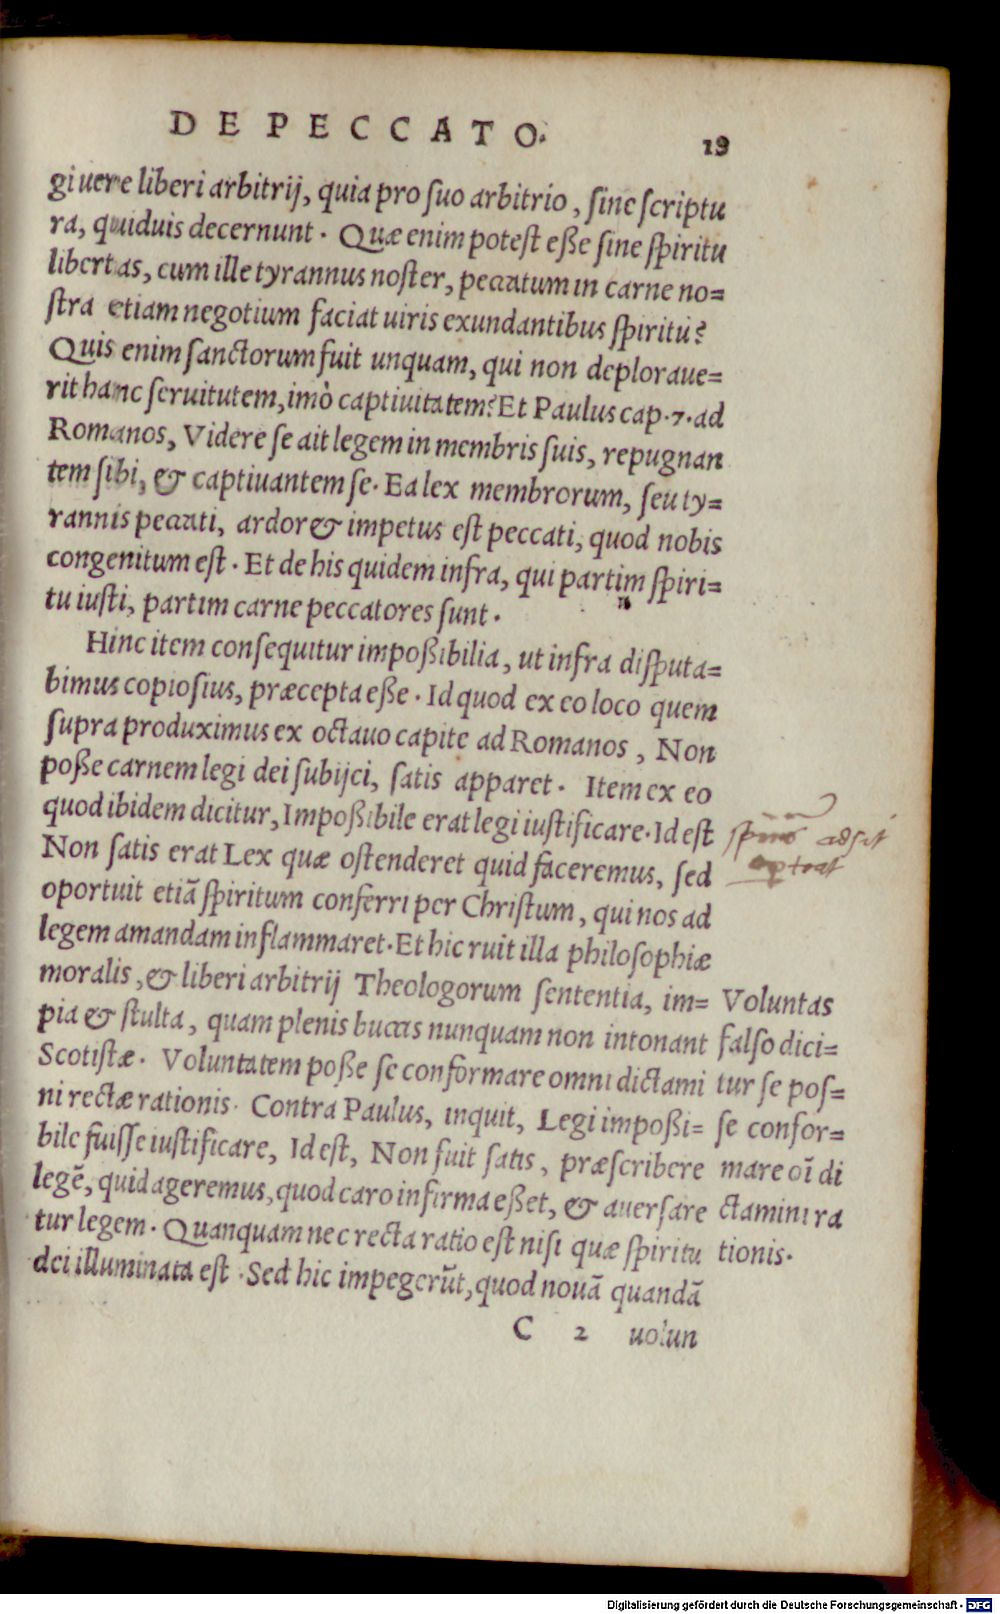 DE PECCATO.
19
gi uere liberi arbitrij, quia pro suo arbitrio, sine scriptu
ra, quiduis decernunt. Quæ enim potest eße sine spiritu
libertas, cum ille tyrannus noster, peccatum in carne no=
stra etiam negotium faciat uiris exundantibus spiritu?
Quis enim sanctorum fuit unquam, qui non deploraue=
rit hanc seruitutem, imò captiuitatem? Et Paulus cap. 7. ad
Romanos, Videre se ait legem in membris suis, repugnan
tem sibi, & captiuantem se. Ea lex membrorum, seu ty=
rannis peccati, ardor & impetus est peccati, quod nobis
congenitum est. Et de his quidem infra, qui partim spiri=
tu iusti, partim carne peccatores sunt.
Hinc item consequitur impoßibilia, ut infra disputa=
bimus copiosius, præcepta eße. Id quod ex eo loco quem
supra produximus ex octauo capite ad Romanos, Non
poße carnem legi dei subijci, satis apparet. Item ex eo
quod ibidem dicitur, Impoßibile erat legi iustificare. Id est
Non satis erat Lex quæ ostenderet quid faceremus, sed
oportuit etiā spiritum conferri per Christum, qui nos ad
legem amandam inflammaret. Et hic ruit illa philosophiæ
moralis, & liberi arbitrij Theologorum sententia, im=
pia & stulta, quam plenis buccis nunquam non intonant
Scotistæ. Voluntatem poße se conformare omni dictami
ni rectæ rationis. Contra Paulus, inquit, Legi impoßi=
bile fuisse iustificare, Id est, Non fuit satis, præscribere
legē, quid ageremus, quod caro infirma eßet, & auersare
tur legem. Quanquam nec recta ratio est nisi quæ spiritu
dei illuminata est. Sed hic impegerūt, quod nouā quandā
C 2 uolun
adsit
Voluntas
falso dici=
tur se pos=
se confor=
mare oī di
ctamini ra
tionis.
Digitalisierung gefördert durch die Deutsche Forschungsgemeinschaft - DFG